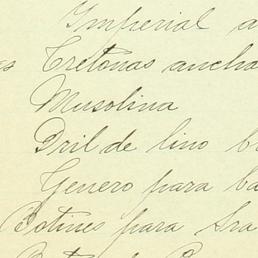 Imperial a
s Cretonas ancha
Musolina
Dril de lino b
Genero para ba
Botines para Sra